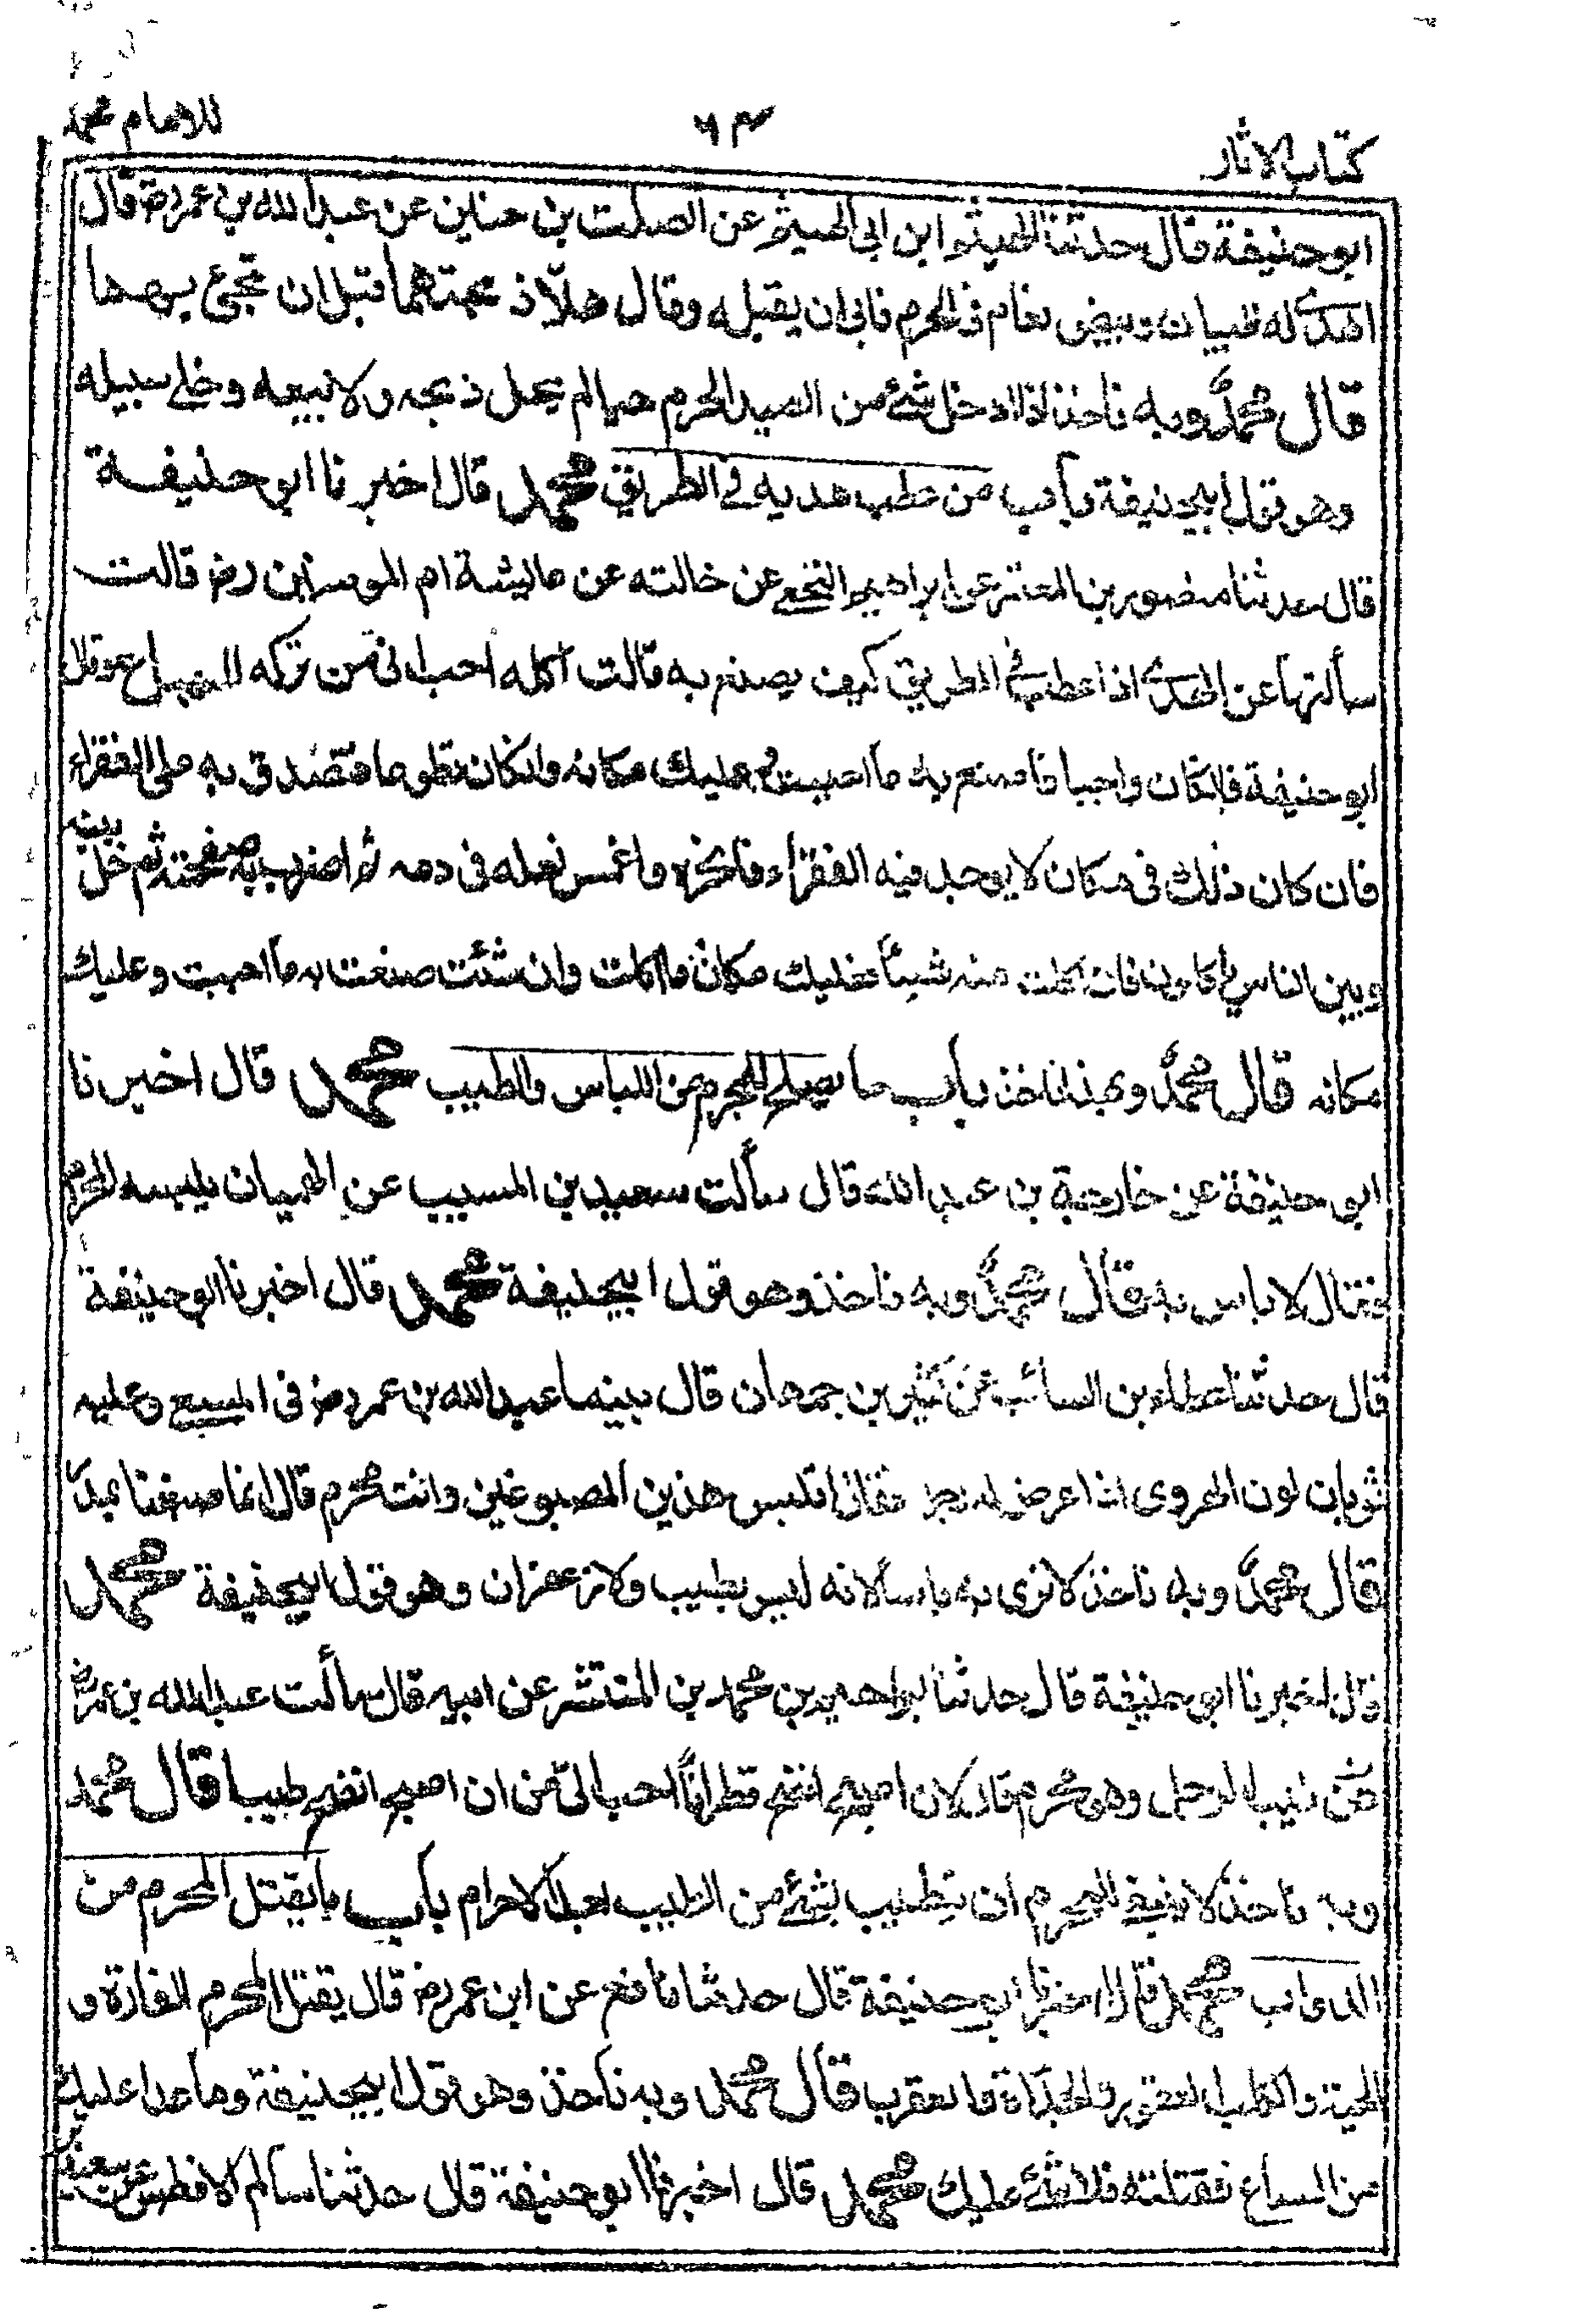 كتاب الاثار
٦٣
للامام محمد
ابو حنيفة قال حدثنا الهيثم ابن ابي الهيثم عن الصلت بن حنين عن عبد الله بن عمر رض قال
اهدى له ظبيان وبيض نعام في الحرم فابى ان يقبله وقال هلّا ذبحتهما قبل ان تجئ بهما
قال محمد وبه ناخذ اذا ادخل شئ من الصيد الحرم حيا لم يحل ذبحه ولا بيعه وخلى سبيله
وهو قول ابيحنيفة باب من عطب هديه في الطريق محمد قال اخبرنا ابو حنيفة
قال حدثنا منصور بن المعتمر عن ابراهيم النخعي عن خالته عن عايشة ام المومنين رض قالت
سألتها عن الهدى اذا عطب في الطريق كيف يصنع به قالت اكله احب الى من تركه للسباع وقال
ابو حنيفة فان كان واجبا فاصنع به ما احببت وعليك مكانه وان كان تطوعا فتصدق به على الفقراء
فان كان ذلك في مكان لا يوجد فيه الفقراء فانحره واغمس نعله في دمه ثم اضرب به صفحته ثم خل بينه
وبين الناس ياكلونه فان اكلت منه شيئا فعليك مكان ما اكلت وان شئت صنعت به ما احببت وعليك
مكانه قال محمد وبهذا ناخذ باب ما يصلح للمحرم من اللباس والطيب محمد قال اخبرنا
ابو حنيفة عن خارجة بن عبد الله قال سألت سعيد بن المسيب عن الهميان يلبسه المحرم
فقال لا باس به قال محمد وبه ناخذ وهو قول ابيحنيفة محمد قال اخبرنا ابو حنيفة
قال حدثنا عطاء بن السائب عن كثير بن جمهان قال بينما عبد الله بن عمر رض في المسعى وعليه
ثوبان لون الهروى اذا عرض له رجل فقال اتلبس هذين المصبوغين وانت محرم قال انما صبغنا بمدر
قال محمد وبه ناخذ لا نرى به باسا لانه ليس بطيب ولا زعفران وهو قول ابيحنيفة محمد
قال اخبرنا ابو حنيفة قال حدثنا ابراهيم بن محمد بن المنتشر عن ابيه قال سألت عبد الله بن عمر رض
عن الرجل وهو محرم قال لان اصبح انضح قطرانا احب الى من ان اصبح انضح طيبا قال محمد
وبه ناخذ لا ينبغي للمحرم ان يتطيب بشئ من الطيب بعد الاحرام باب ما يقتل المحرم من
الدواب محمد قال اخبرنا ابو حنيفة قال حدثنا نافع عن ابن عمر رض قال يقتل المحرم الفارة و
الحية والكلب العقور والحدأة والعقرب قال محمد وبه ناخذ وهو قول ابيحنيفة وما عدا عليك
من السباع فقتلته فلا شئ عليك محمد قال اخبرنا ابو حنيفة قال حدثنا سالم الافطس عن سعيد بن